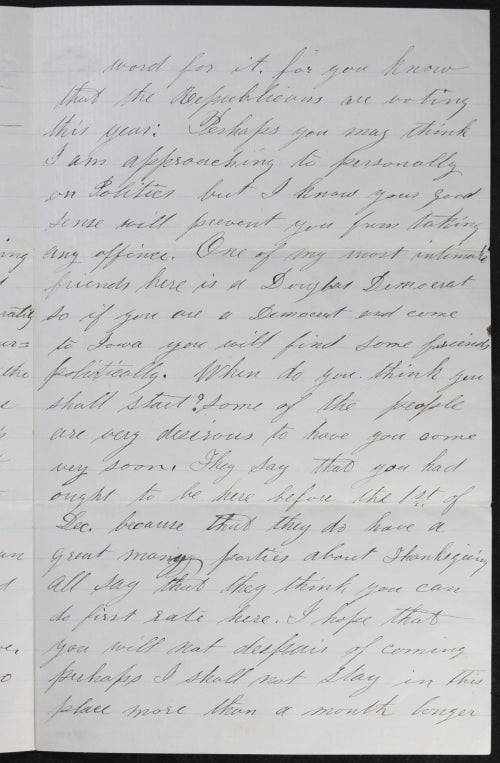 word for it. for you know
that the Republicans are voting
this year: Perhaps you may think
I am approaching to personally
on Politics but I know your good
sense will prevent you from taking
any offince. One of my most intimate
friends here is a Douglas Democrat
so if you are a Democrat and come
to Iowa you will find some friends
politically. When do you think you
shall start? Some of the people
are very desirous to have you come
very soon. They say that you had
ought to be here before the 1st of
Dec. because that they do have a
great many parties about Thanksgiving
all say that they think you can
do first rate here. I hope that
you will not despair of coming
perhaps I shall not stay in this
place more than a month longer